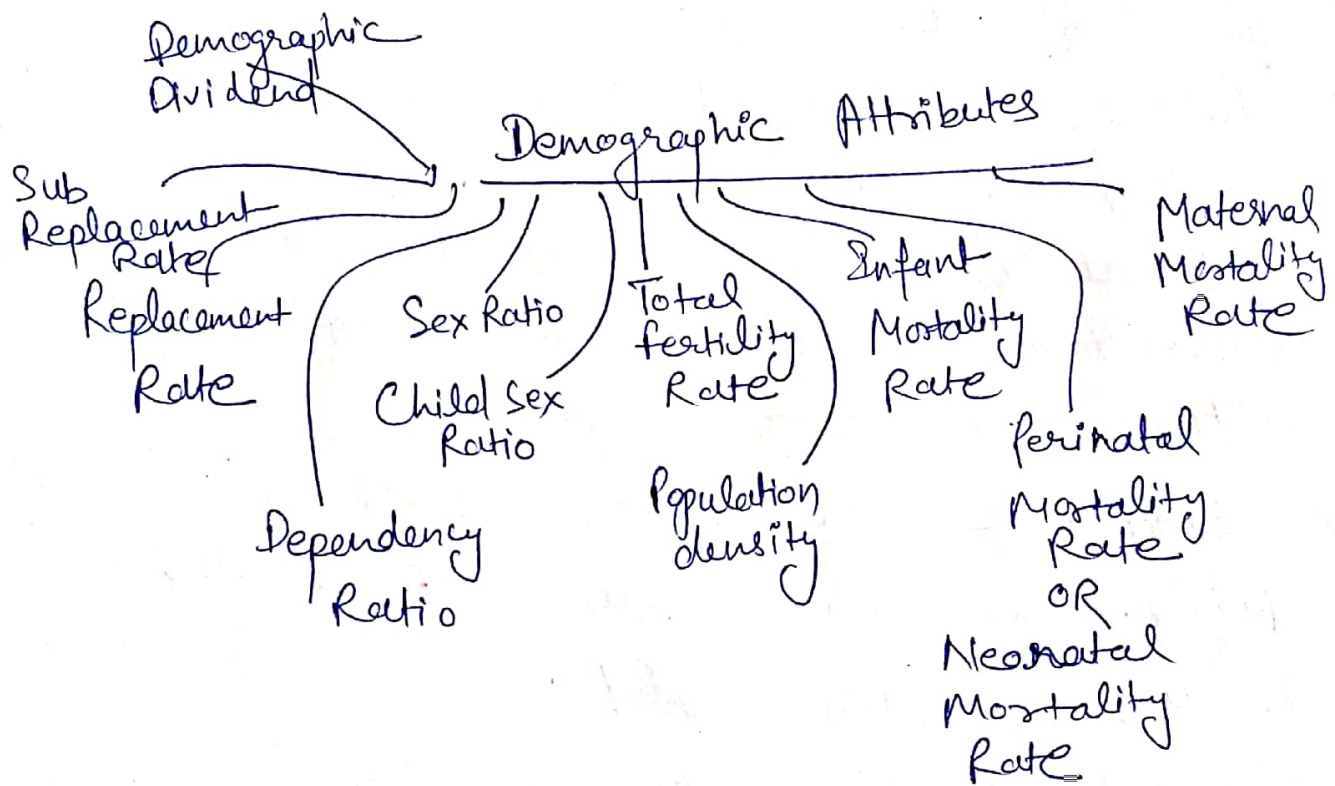 Demographic
Dividend
Demographic Attributes
Sub
Replacement
Rate
Replacement
Rate
Dependency
Ratio
Sex Ratio
Child Sex
Ratio
Total
fertility
Rate
Population
density
Infant
Mortality
Rate
Perinatal
Mortality
Rate
OR
Neonatal
Mortality
Rate
Maternal
Mortality
Rate